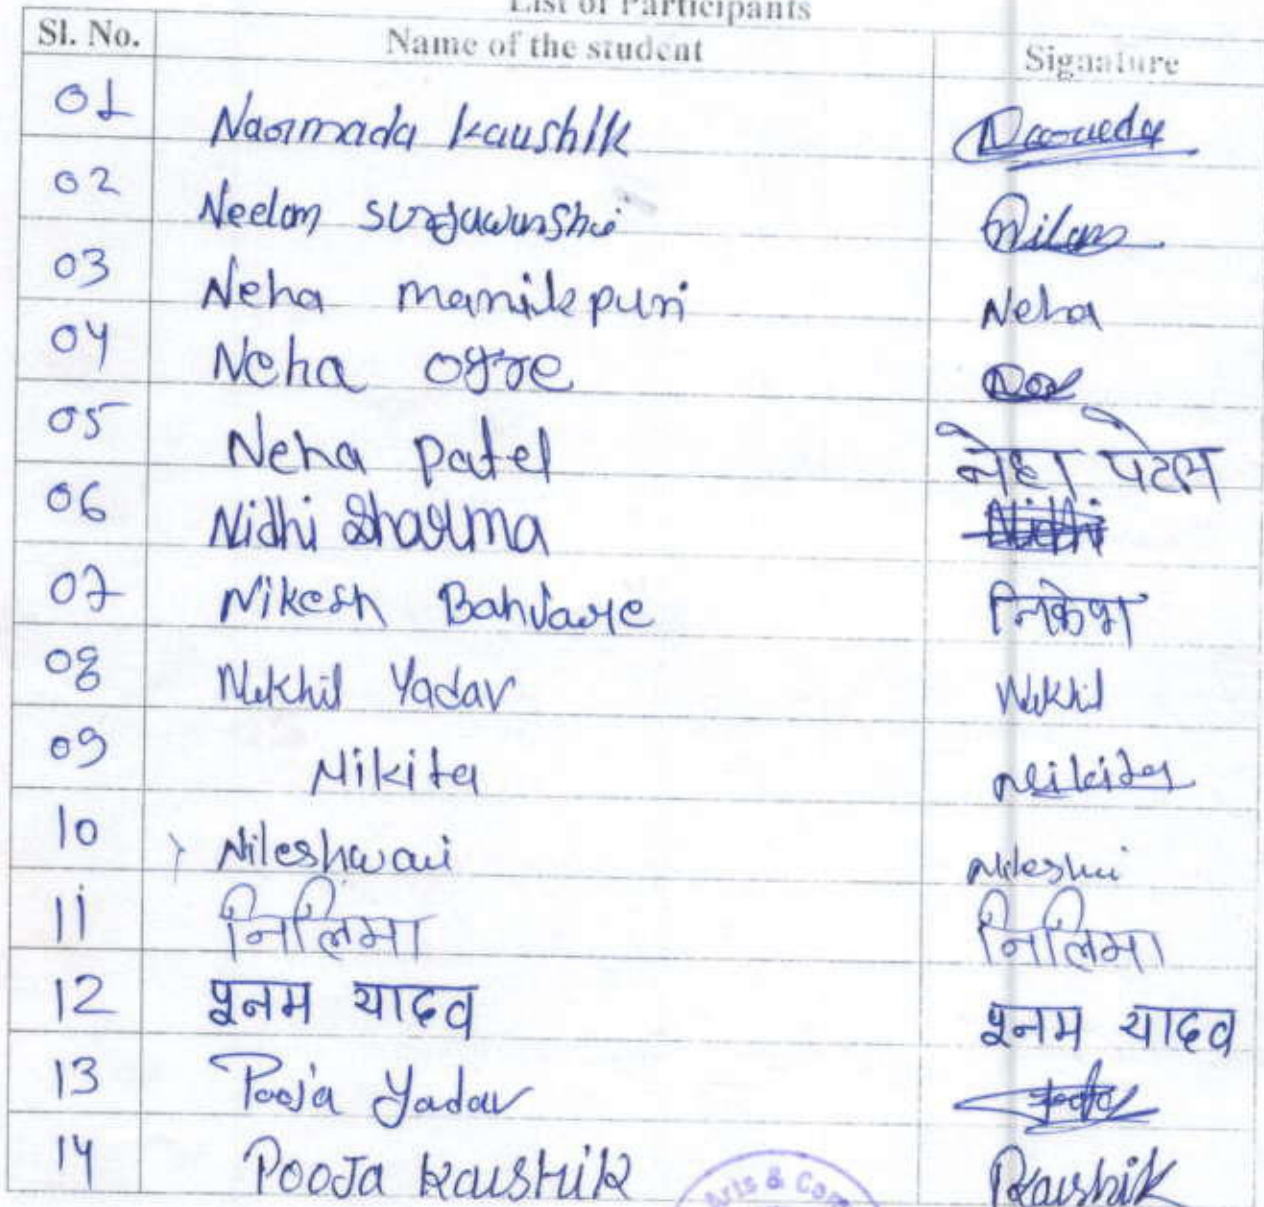 List of Participants
Sl. No. Name of the student Signature
01 Narmada Kaushik Narmada
02 Neelam Surjuwanshi Nilam
03 Neha manikpuri Neha
04 Neha ogre
05 Neha patel नेहा पटेल
06 Nidhi Sharma Nidhi
07 Nikesh Banjare निकेश
08 Nikhil Yadav Nikhil
09 Nikita Nikita
10 Nileshwari Nileshwi
11 निलिमा निलिमा
12 पूनम यादव पूनम यादव
13 Pooja Yadav
14 Pooja Kaushik PKaushik
Arts & Com